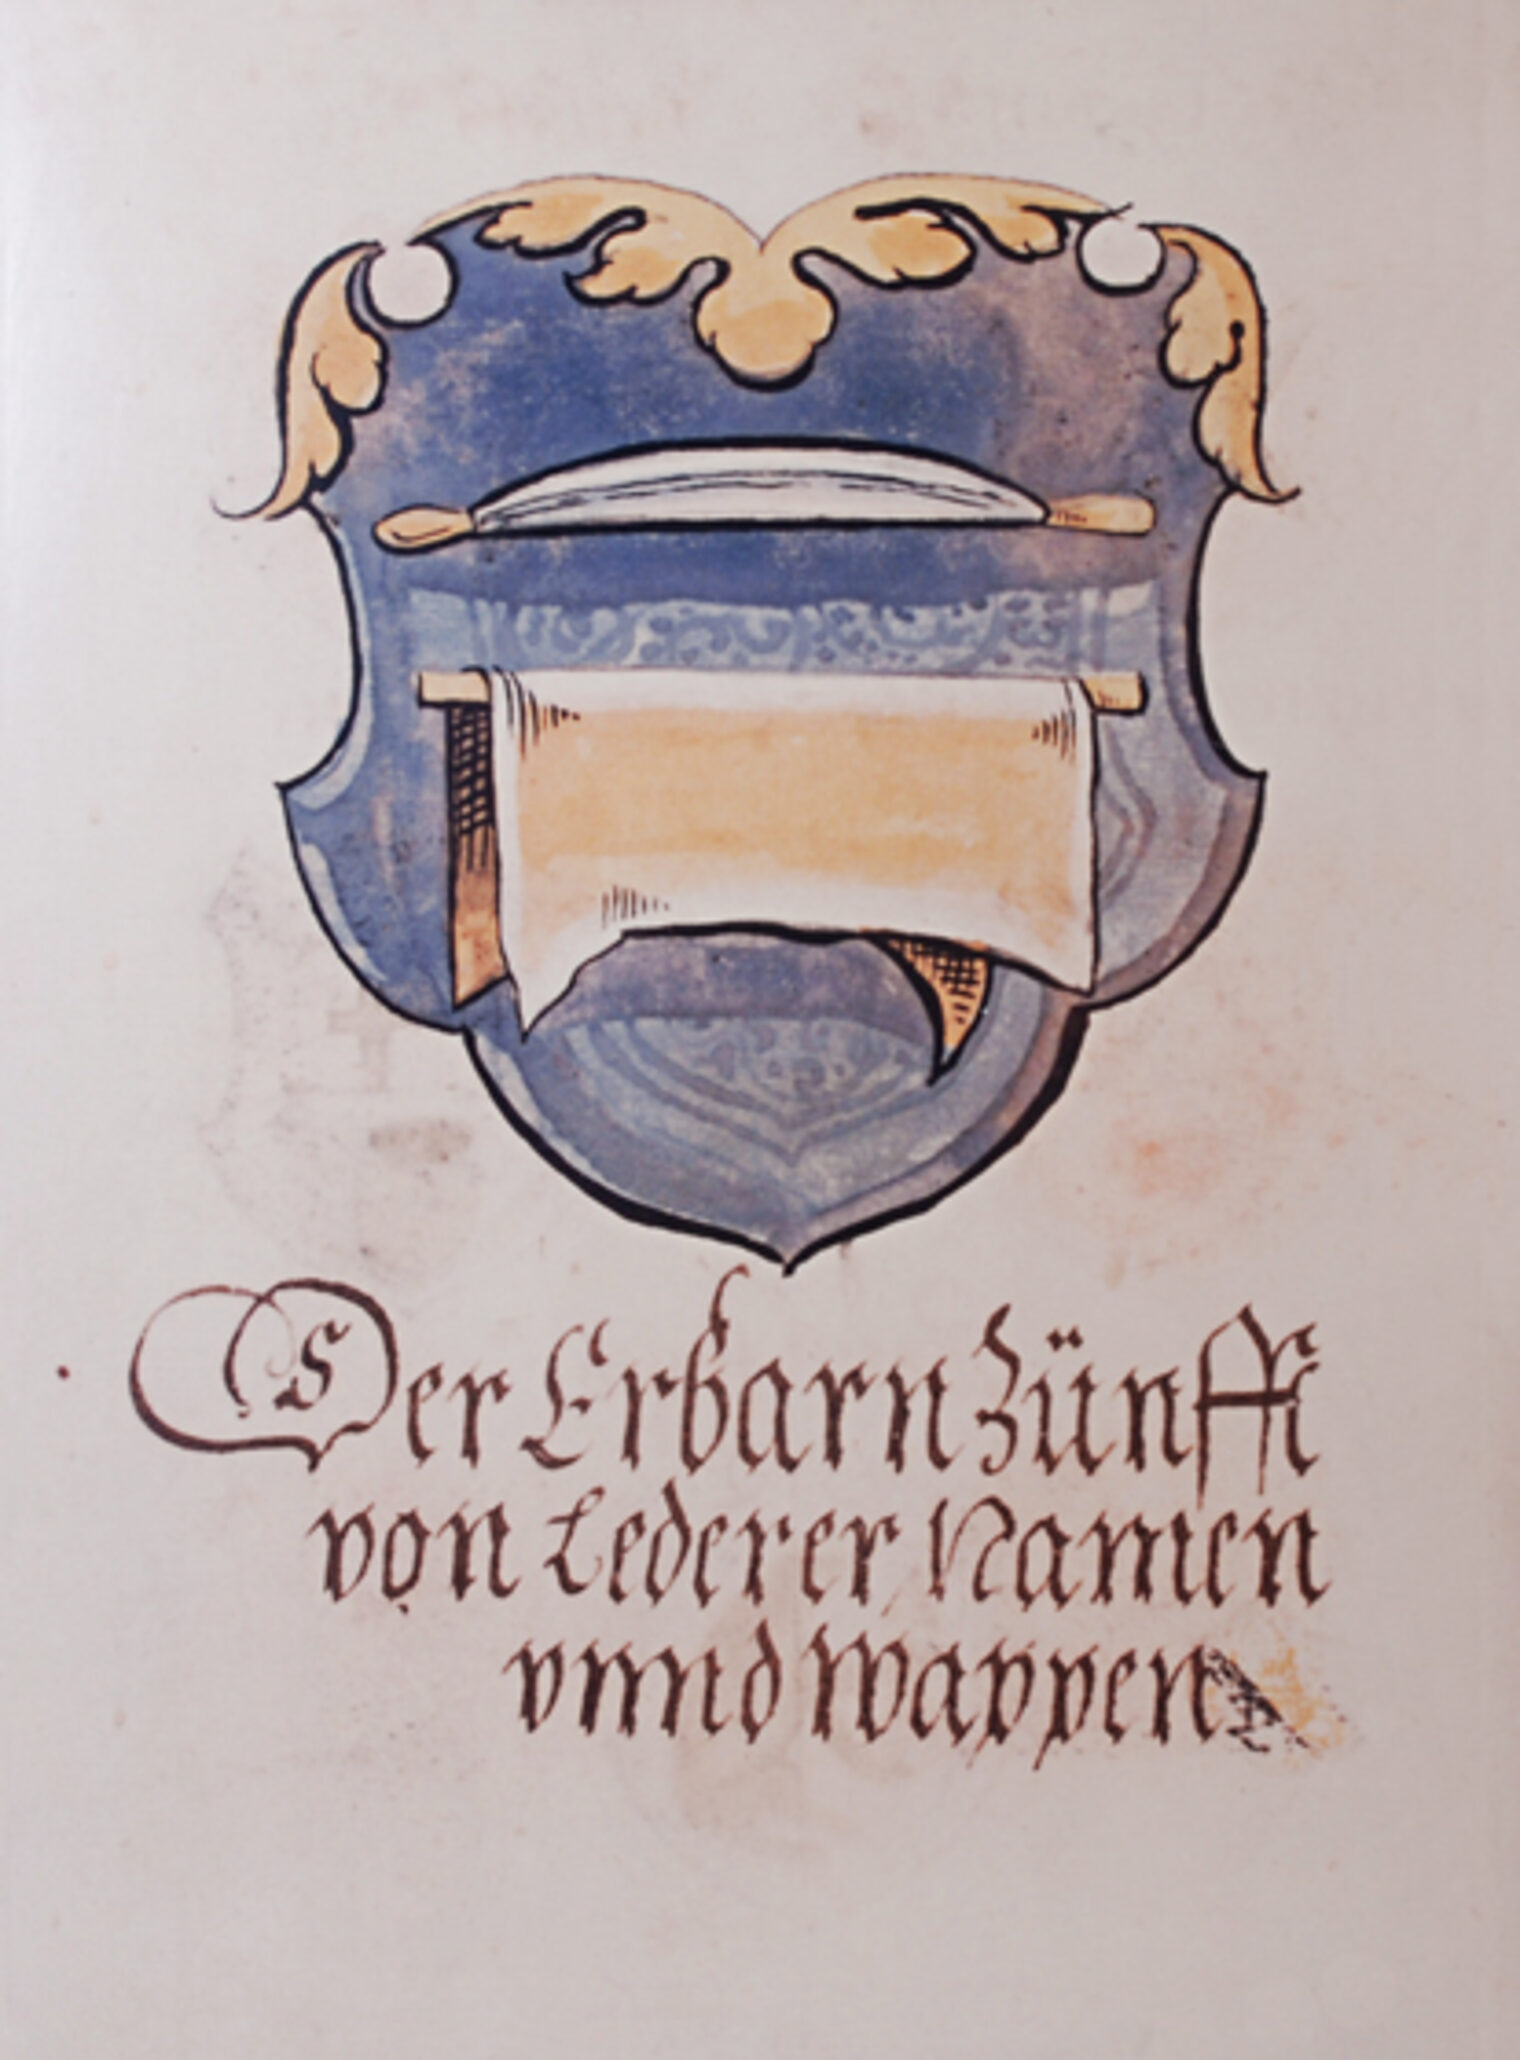 Der Erbarn Zünfft
von Lederer Namen
vnnd Wappen